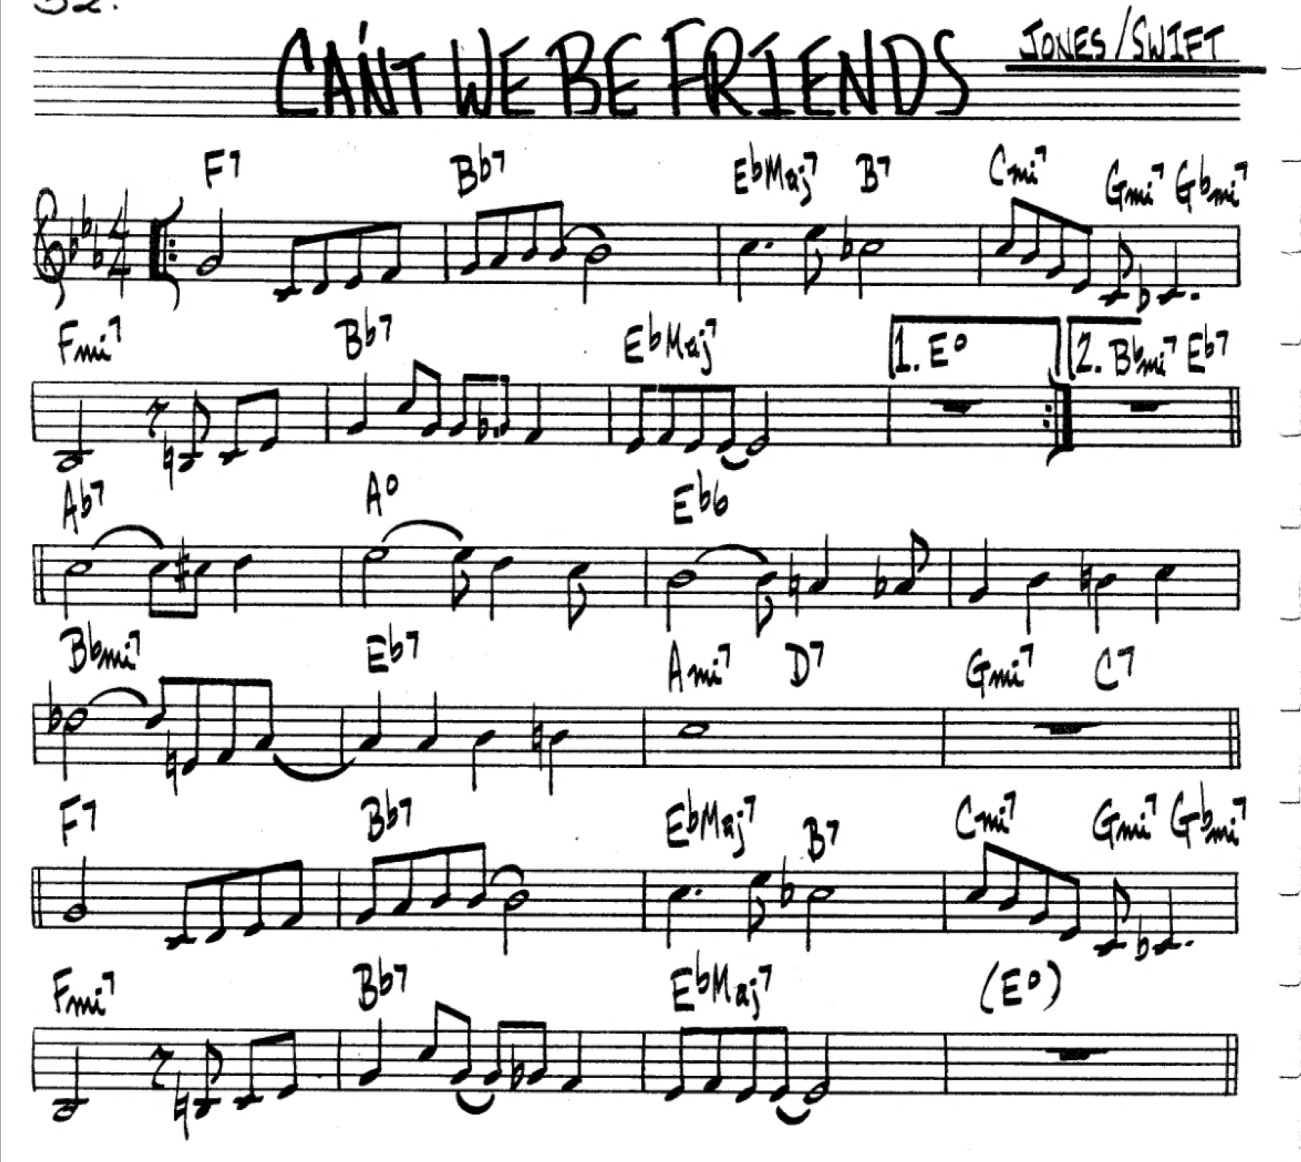 52.
CAN'T WE BE FRIENDS
JONES/SWIFT
F7 Bb7 EbMaj7 B7 Cmi7 Gmi7 Gbmi7
4
4
Fmi7 Bb7 EbMaj7 1. Eo 2. Bbmi7 Eb7
Ab7 Ao Eb6
Bbmi7 Eb7 Ami7 D7 Gmi7 C7
F7 Bb7 EbMaj7 B7 Cmi7 Gmi7 Gbmi7
Fmi7 Bb7 EbMaj7 (Eo)